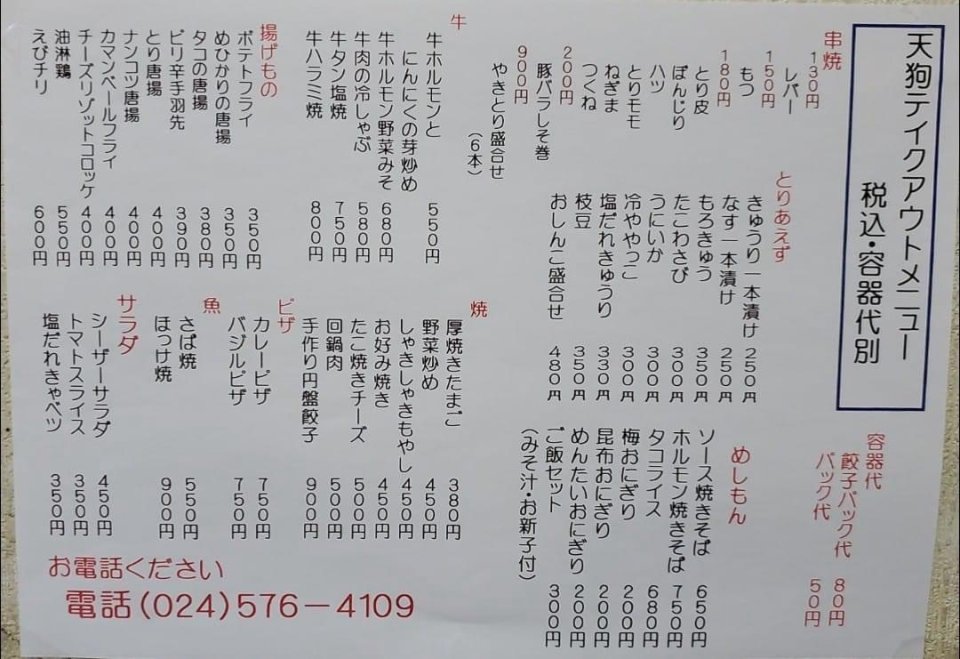 天狗テイクアウトメニュー
税込・容器代別
串焼
130円
レバー
150円
もつ
180円
とり皮
ぼんじり
ハツ
とりモモ
ねぎま
つくね
200円
豚バラしそ巻
900円
やきとり盛合せ
(6本)
とりあえず
きゅうり一本漬け 250円
なす一本漬け 250円
もろきゅう 350円
たこわさび 300円
うにいか 300円
冷ややっこ 300円
塩だれきゅうり 330円
枝豆 350円
おしんこ盛合せ 480円
容器代
餃子パック代 80円
パック代 50円
めしもん
ソース焼きそば 650円
ホルモン焼きそば 750円
タコライス 680円
梅おにぎり 200円
昆布おにぎり 200円
めんたいおにぎり 200円
ご飯セット 300円
(みそ汁・お新子付)
牛
牛ホルモンと
にんにくの芽炒め 550円
牛ホルモン野菜みそ 680円
牛肉の冷しゃぶ 580円
牛タン塩焼 750円
牛ハラミ焼 800円
揚げもの
ポテトフライ 350円
めひかりの唐揚 350円
タコの唐揚 380円
ピリ辛手羽先 390円
とり唐揚 400円
ナンコツ唐揚 400円
カマンベールフライ 400円
チーズリゾットコロッケ 400円
油淋鶏 550円
えびチリ 600円
焼
厚焼きたまご 380円
野菜炒め 450円
しゃきしゃきもやし 450円
お好み焼き 450円
たこ焼きチーズ 500円
回鍋肉 500円
手作り円盤餃子 900円
ピザ
カレーピザ 750円
バジルピザ 750円
魚
さば焼 550円
ほっけ焼 900円
サラダ
シーザーサラダ 450円
トマトスライス 350円
塩だれきゃべツ 350円
お電話ください
電話(024)576-4109